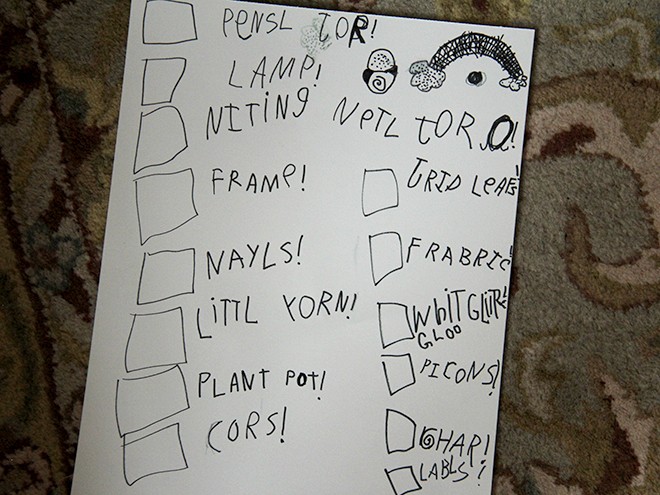 PeNSL TOR!
LAMP!
NITINg NeTL TOR O!
FRAMe!
NAYLS!
LiTTL YORN!
PLANT POT!
CORS!
DRID LeAFS!
FRABRIC!
WhIT GLITR!
GLOO
PICONS!
CHAR!
LABLS!